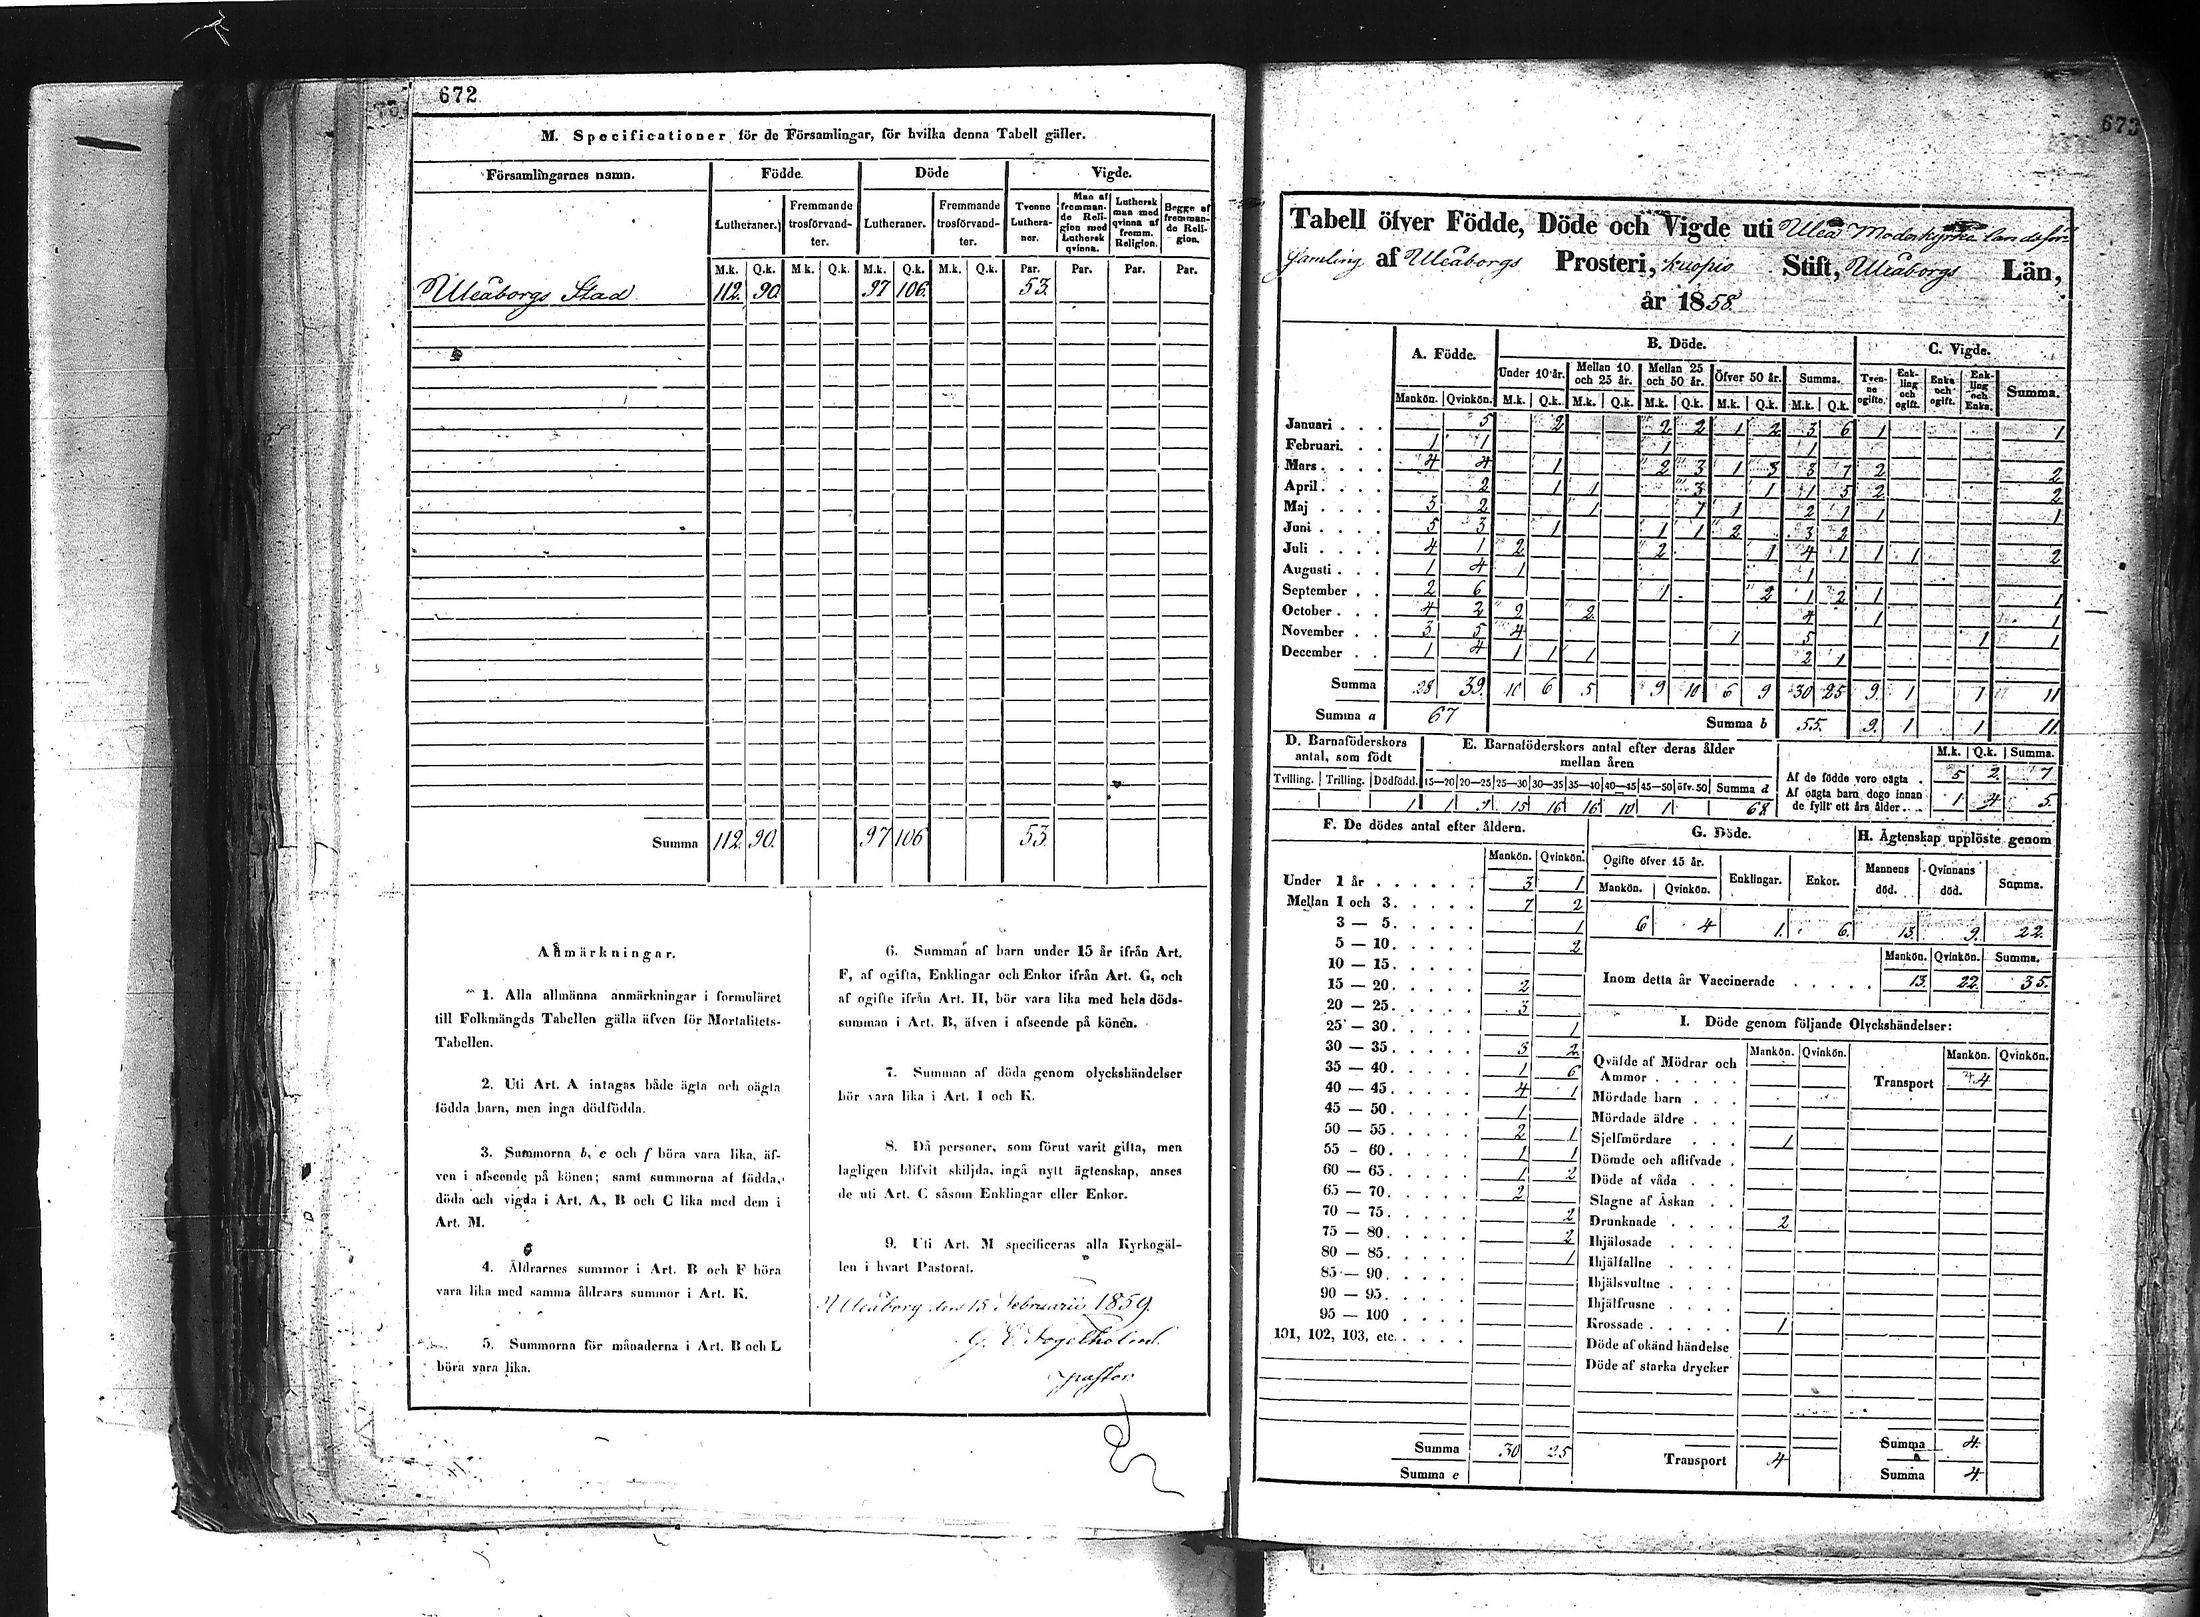 672
M. Specificationer för de Församlingar, för hvilka denna Tabell gäller.
Församlingarnes namn. Födde Döde Vigde.
Lutheraner. Fremmande trosförvandter. Lutheraner. Fremmande trosförvandter. Tvenne Lutheraner. Man af fremmande Religion med Luthersk qvinna. Luthersk man med qvinna af fremm. Religion. Begge af fremmande Religion.
M.k. Q.k. M.k. Q.k. M.k. Q.k. M.k. Q.k. Par. Par. Par. Par.
Uleåborgs Stad 112. 90 97 106. 53.
Summa 112. 90. 97 106 53.
Anmärkningar.
1. Alla allmänna anmärkningar i formuläret
till Folkmängds Tabellen gälla äfven för Mortalitets-
Tabellen.
2. Uti Art. A intagas både ägta och oägta
födda barn, men inga dödfödda.
3. Summorna b, c och f böra vara lika, äf-
ven i afseende på könen; samt summorna af födda,
döda och vigda i Art. A, B och C lika med dem i
Art. M.
4. Åldrarnes summor i Art. B och F böra
vara lika med samma åldrars summor i Art. K.
5. Summorna för månaderna i Art. B och L
böra vara lika.
6. Summan af barn under 15 år ifrån Art.
F, af ogifta, Enklingar och Enkor ifrån Art. G, och
af ogifte ifrån Art. H, bör vara lika med hela döds-
summan i Art. B, äfven i afseende på könen.
7. Summan af döda genom olyckshändelser
bör vara lika i Art. I och K.
8. Då personer, som förut varit gifta, men
lagligen blifvit skiljda, ingå nytt ägtenskap, anses
de uti Art. C såsom Enklingar eller Enkor.
9. Uti Art. M specificeras alla Kyrkogäl-
len i hvart Pastorat.
Uleåborg den 15 Februarii 1859.
pastor
673
Tabell öfver Födde, Döde och Vigde uti Uleå Moderkyrko landsför
samling af Uleåborgs Prosteri, Kuopio Stift, Uleåborgs Län,
år 1858.
A. Födde. B. Döde. C. Vigde.
Under 10 år. Mellan 10 och 25 år. Mellan 25 och 50 år. Öfver 50 år. Summa. Tvenne ogifte. Enkling och ogift. Enka och ogift. Enkling och Enka. Summa.
Mankön. Qvinkön. M.k. Q.k. M.k. Q.k. M.k. Q.k. M.k. Q.k. M.k. Q.k.
Januari 5 2 2 2 1 2 3 6 1 1
Februari 1 1 1 1
Mars 4 4 1 2 3 1 3 3 7 2 2
April 2 1 1 3 1 1 5 2 2
Maj 3 2 1 1 1 2 1 1 1
Juni 5 3 1 1 1 2 3 2
Juli 4 1 2 2 1 4 1 1 1 2
Augusti 1 4 1 1
September 2 6 1 2 1 2 1 1
October 4 2 2 2 4 1 1
November 3 5 4 1 5 1 1
December 1 4 1 1 1 2 1
Summa 28 39. 10 6 5 9 10 6 9 30 25 9. 1 1 11
Summa a 67 Summa b 55. 9. 1 1 11.
D. Barnaföderskors antal, som födt
Tvilling. Trilling. Dödfödd.
1
E. Barnaföderskors antal efter deras ålder mellan åren
15—20 20—25 25—30 30—35 35—40 40—45 45—50 öfv. 50 Summa d
1 9 15 16 16 10 1 68.
M.k. Q.k. Summa.
Af de födde voro oägta 5 2 7
Af oägta barn dogo innan
de fyllt ett års ålder 1 4 5.
F. De dödes antal efter åldern.
Mankön. Qvinkön.
Under 1 år 3 1
Mellan 1 och 3 7 2
3 — 5 1
5 — 10 2
10 — 15
15 — 20 2
20 — 25 3
25 — 30 1
30 — 35 3 2
35 — 40 1 6
40 — 45 4 1
45 — 50 1
50 — 55 2 1
55 — 60 1 1
60 — 65 1 2
65 — 70 2
70 — 75 2
75 — 80 2
80 — 85 1
85 — 90
90 — 95
95 — 100
101, 102, 103, etc.
Summa 30 25
Summa e
G. Döde.
Ogifte öfver 15 år. Enklingar. Enkor.
Mankön. Qvinkön.
6 4 1. 6
H. Ägtenskap upplöste genom
Mannens död. Qvinnans död. Summa.
13. 9. 22.
Mankön. Qvinkön. Summa.
Inom detta år Vaccinerade 13. 22. 35.
I. Döde genom följande Olyckshändelser:
Mankön. Qvinkön. Mankön. Qvinkön.
Qväfde af Mödrar och
Ammor
Transport 4
Mördade barn
Mördade äldre
Sjelfmördare 1
Dömde och aflifvade
Döde af våda
Slagne af Åskan
Drunknade 2
Ihjälosade
Ihjälfallne
Ihjälsvultne
Ihjälfrusne
Krossade 1
Döde af okänd händelse
Döde af starka drycker
Transport 4
Summa 4.
Summa 4.